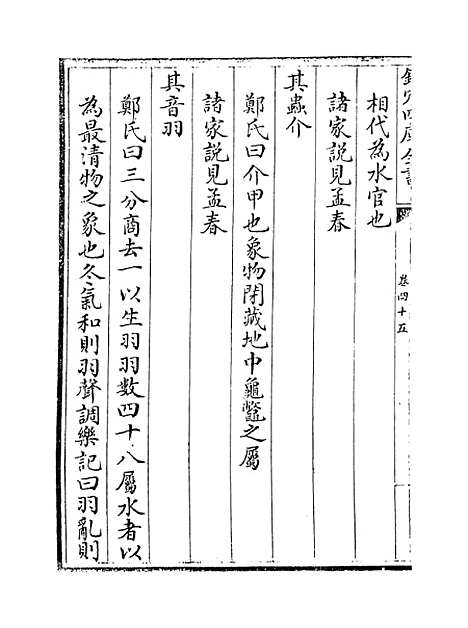 欽定四庫全書
卷四十五
相代為水官也
諸家說見孟春
其蟲介
鄭氏曰介甲也象物閉藏地中龜鼈之屬
諸家說見孟春
其音羽
鄭氏曰三分商去一以生羽羽數四十八屬水者以
為最清物之象也冬氣和則羽聲調樂記曰羽亂則